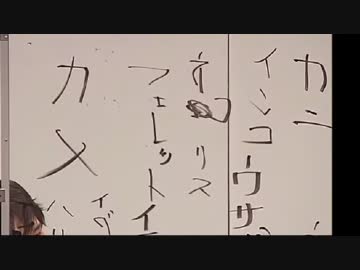 カニ
インコ ウサ
リス
フェレット イ
イグ
カメ ハ